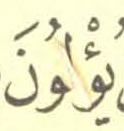 يُؤْلُونَ